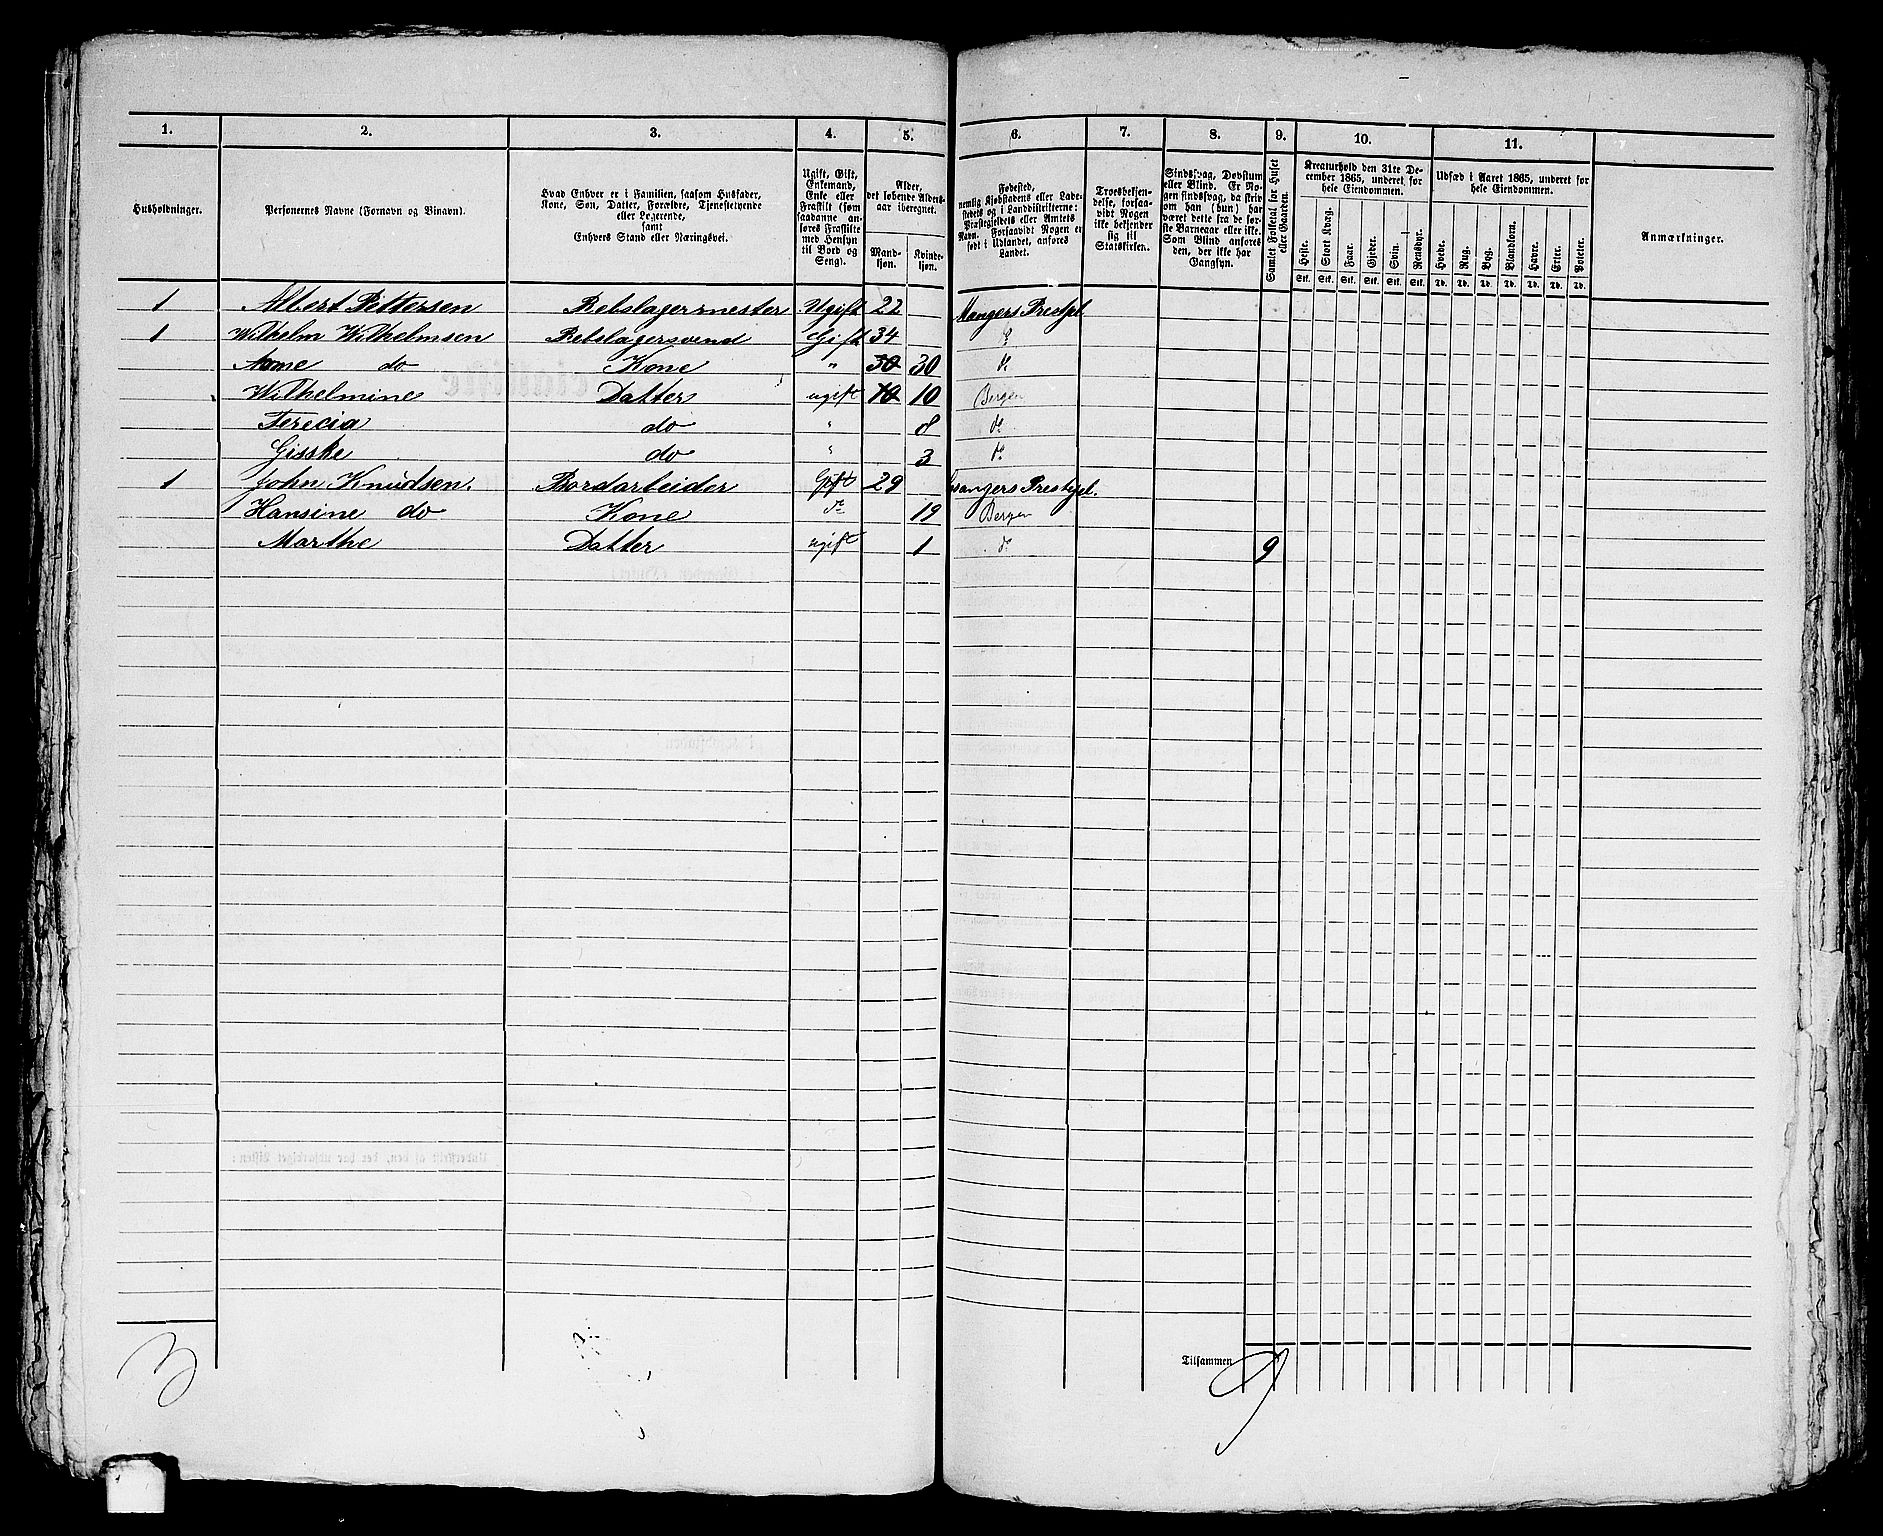 1. 2. 3. 4. 5. 6. 7. 8. 9. 10. 11.
Husholdninger.
Personernes Navne (Fornavn og Binavn).
Hvad Enhver er i Familien, saasom Husfader,
Kone, Søn, Datter, Forældre, Tjenestetyende
eller Logerende,
samt
Enhvers Stand eller Næringsvei.
Ugift, Gift,
Enkemand,
Enke eller
Fraskilt (som
saadanne an-
føres Fraskilte
med Hensyn
til Bord og
Seng).
Alder,
det løbende Alders-
aar iberegnet.
Mand-
kjøn.
Kvinde-
kjøn.
Fødested,
nemlig Kjøbstadens eller Lade-
stedets og i Landdistrikterne:
Præstegjeldets eller Amtets
Navn. Forsaavidt Nogen er
født i Udlandet, anføres
Landet.
Troesbekjen-
delse, forsaa-
vidt Nogen
ikke bekjender
sig til
Statskirken.
Sindssvag, Døvstum
eller Blind. Er No-
gen sindssvag, da skriv
om han (hun) har
været dette fra de før-
ste Barneaar eller ikke.
Som Blind anføres
den, der ikke har
Gangsyn.
Samlet Folketal for Huset
eller Gaarden.
Kreaturhold den 31te De-
cember 1865, underet for
hele Eiendommen.
Heste. Stort Kvæg. Faar. Gjeder. Svin. Rensdyr.
Stk. Stk. Stk. Stk. Stk. Stk.
Udsæd i Aaret 1865, underet for
hele Eiendommen.
Hvede. Rug. Byg. Blandkorn. Havre. Erter. Poteter.
Td. Td. Td. Td. Td. Td. Td.
Anmærkninger.
1 Albert Pettersen Rebslagermester Ugift 22 Mangers Prestgl
1 Wilhelm Wilhelmsen Rebslagersvend Gift 34 do
Anne do Kone " 30 30 do
Wilhelmine Datter ugift 10 10 Bergen
Terecia do " 8 do
Gisske do " 3 do
1 John Knudsen. Bordarbeider Gift 29 Prestgl.
Hansine do Kone do 19 Bergen
Marthe Datter ugift 1 do 9
3
Tilsammen 9